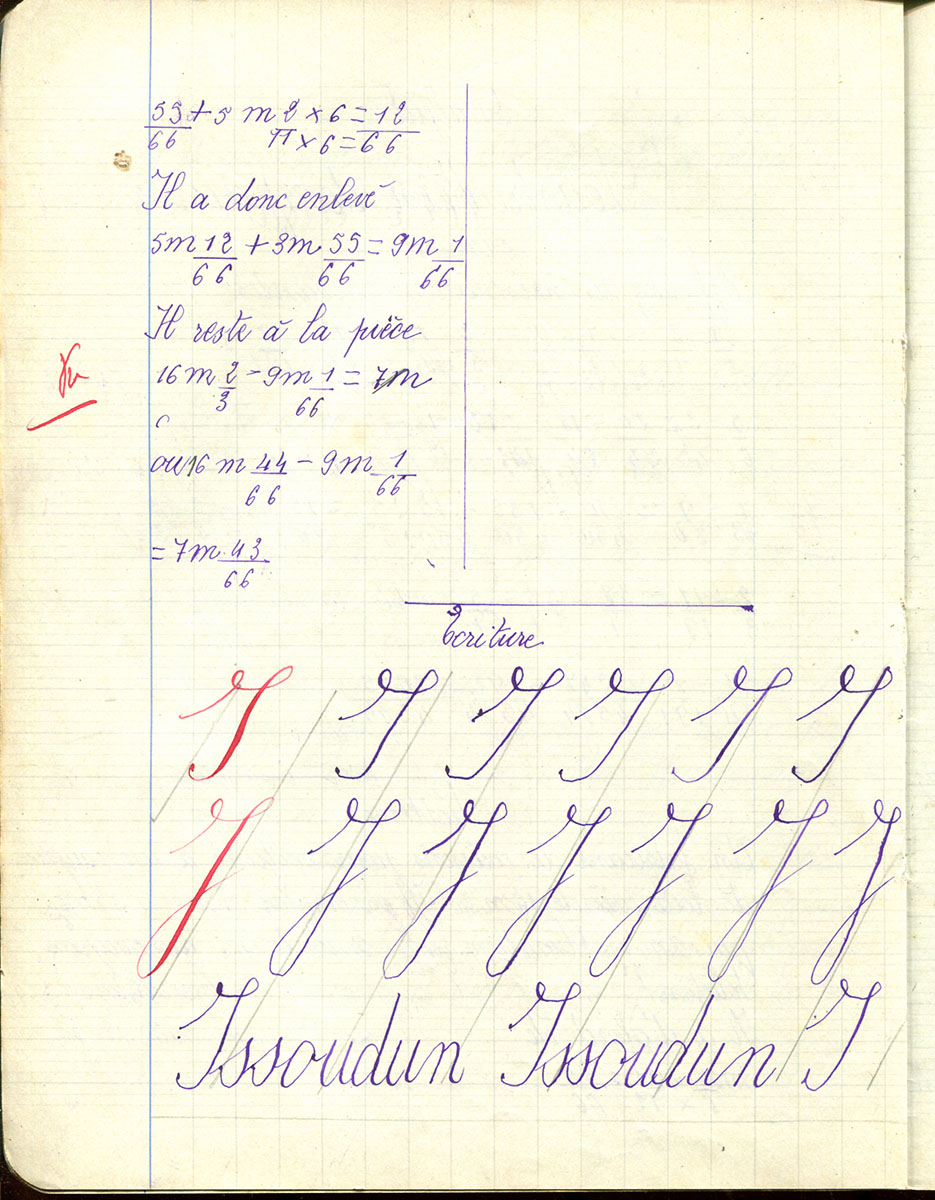 55/66 + 5 m 2 × 6 = 12
11 × 6 = 66
Il a donc enlevé
5m 12/66 + 3m 55/66 = 9m 1/66
Il reste à la pièce
16m 2/3 - 9m 1/66 = 7m
ou 16 m 44/66 - 9m 1/66
= 7m 43/66
Vu
Ecriture
I I I I I I
J J J J J J J
Issoudun Issoudun I